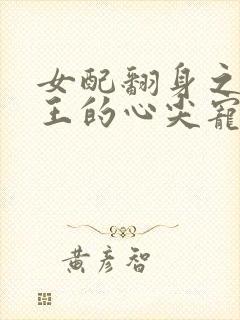 女配翻身之
王的心尖寵
黄彦智